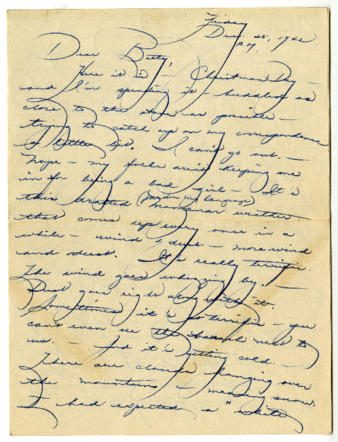 Friday
Dec. 25, 1942
P.M.
Dear Betty,
Here it is - Christmas Day -
and I'm spending it - huddled as
close to the stove as possible -
trying to catch up on my correspondence
a little bit. I can't go out. -
Nope - my folks aren't keeping me
in for being a bad girl - It is
this (pardon my language)
Manzanar weather
that comes up every once in a
while - wind & dust - more wind
and dust. It's really terrific.
The wind goes whizzing by. -
Dust goes right along with it.
Sometimes it is so terrific - you
can't even see the barrack next to
us. - And it's getting cold. -
There are clouds hanging over
the mountains - meaning snow.
I had expected a "white